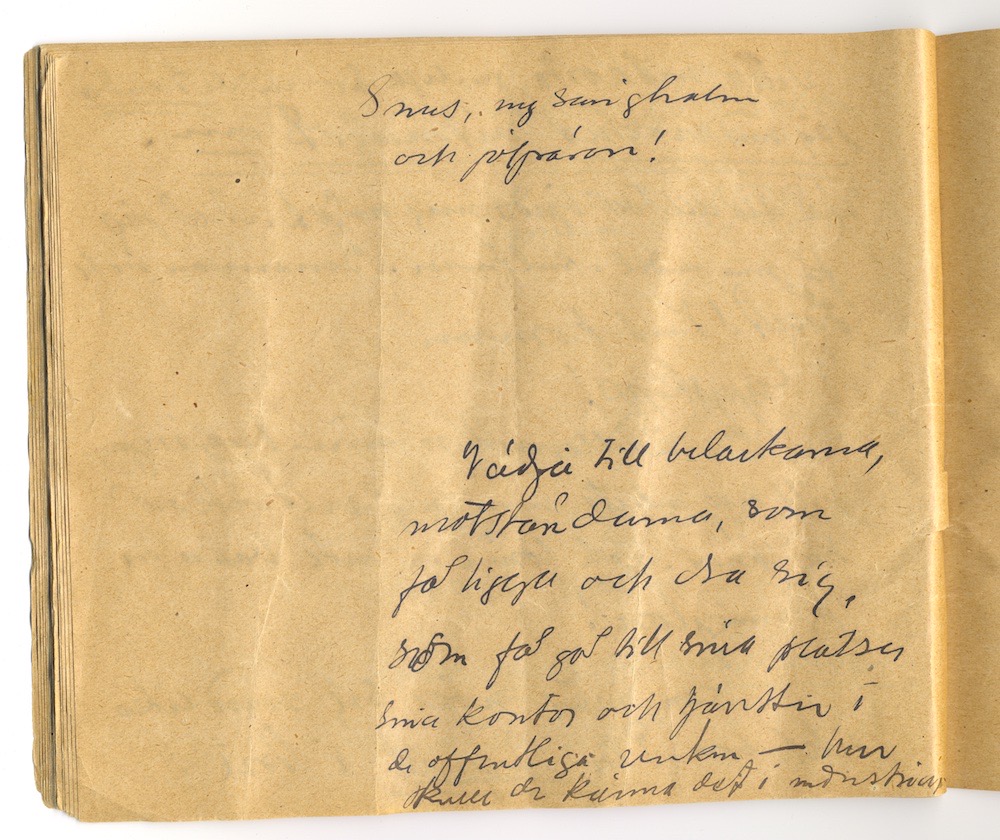 Snus, ny sänghalm
och jolpáron!
Vädja till belackarna,
motståndarna, som
få ligga och dra sig,
som få gå till sina platser
sina kontor och tjänster i
de offentliga verken — hur
skulle de känna det i industrin